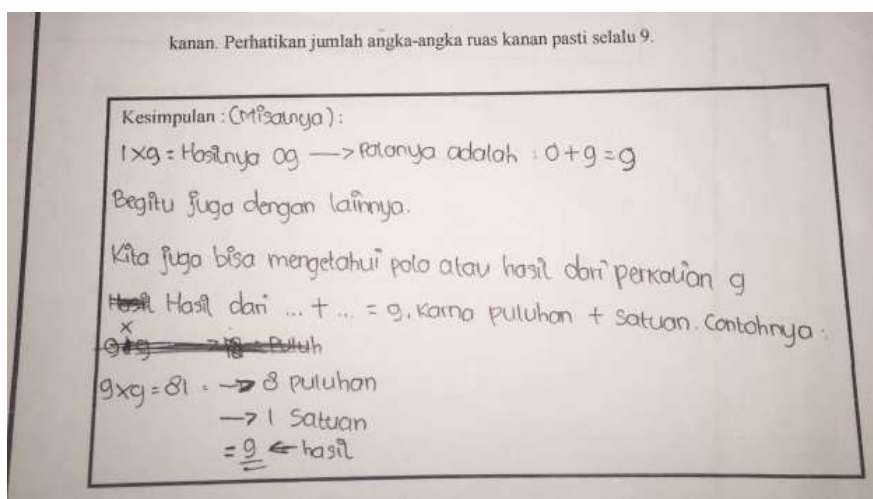 kanan. Perhatikan jumlah angka-angka ruas kanan pasti selalu 9.
Kesimpulan : (Misalnya) :
1 x 9 = Hasilnya 09 —> Polanya adalah : 0 + 9 = 9
Begitu juga dengan lainnya.
Kita juga bisa mengetahui pola atau hasil dari perkalian 9
Hasil Hasil dari ... + ... = 9. Karna puluhan + Satuan. Contohnya :
9 x 9 = 81 = —> 8 puluhan
—> 1 Satuan
= 9 <— hasil